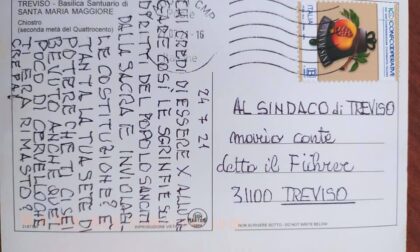 TREVISO - Basilica Santuario di
SANTA MARIA MAGGIORE
Chiostro
(seconda metà del Quattrocento)
CMP
ITALIA
B
CONFCOOPERATIVE
24 7 21
CREDI DI ESSERE X ALLUN
GARE COSÌ LE SGRINFIE SUI
DIRITTI DEL POPOLO SANCITI
DALLA SACRA E INVIOLABI
LE COSTITUZIONE? È
TANTA LA TUA SETE DI
POTERE CHE TI CI SEI
BEVUTO ANCHE QUEL
POCO DI CERVELLO CHE
T'ERA RIMASTO?
CREPA!
AL SINDACO di TREVISO
mario conte
detto il Führer
31100 TREVISO
NON SCRIVERE SOTTO - DO NOT WRITE BELOW